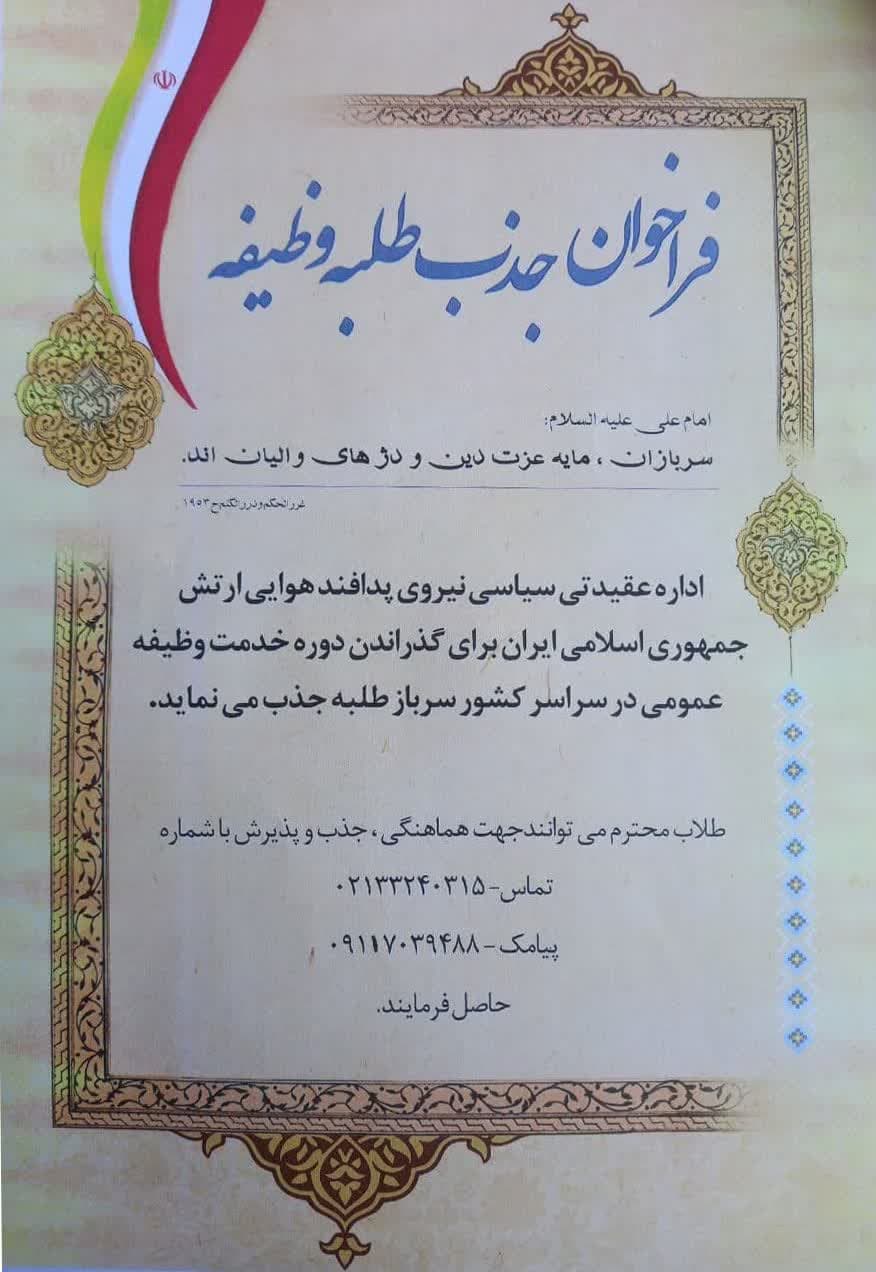 فراخوان جذب طلبه وظیفه
امام علی علیه السلام:
سربازان، مایه عزت دین و دژهای والیان اند.
غررالحکم و دررالکلم ح ۱۹۵۳
اداره عقیدتی سیاسی نیروی پدافند هوایی ارتش
جمهوری اسلامی ایران برای گذراندن دوره خدمت وظیفه
عمومی در سراسر کشور سرباز طلبه جذب می نماید.
طلاب محترم می توانند جهت هماهنگی، جذب و پذیرش با شماره
تماس-۰۲۱۳۳۲۴۰۳۱۵
پیامک-۰۹۱۱۷۰۳۹۴۸۸
حاصل فرمایند.